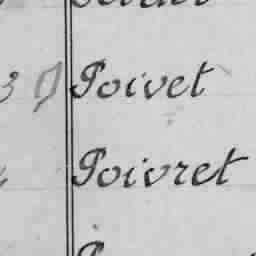 3 Poivet
Poivret